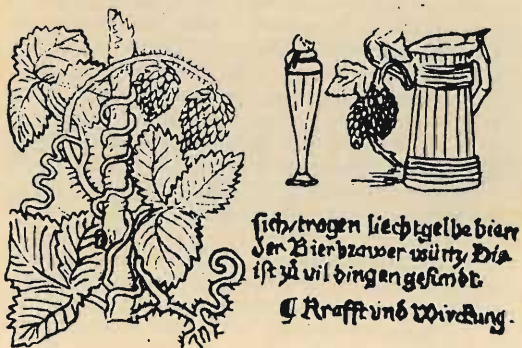 sich/tragen liechtgelbe bien
der Bierbrawer würtz/ Die
ist zů vil dingen gesundt.
¶ Krafft vnd Wirckung.